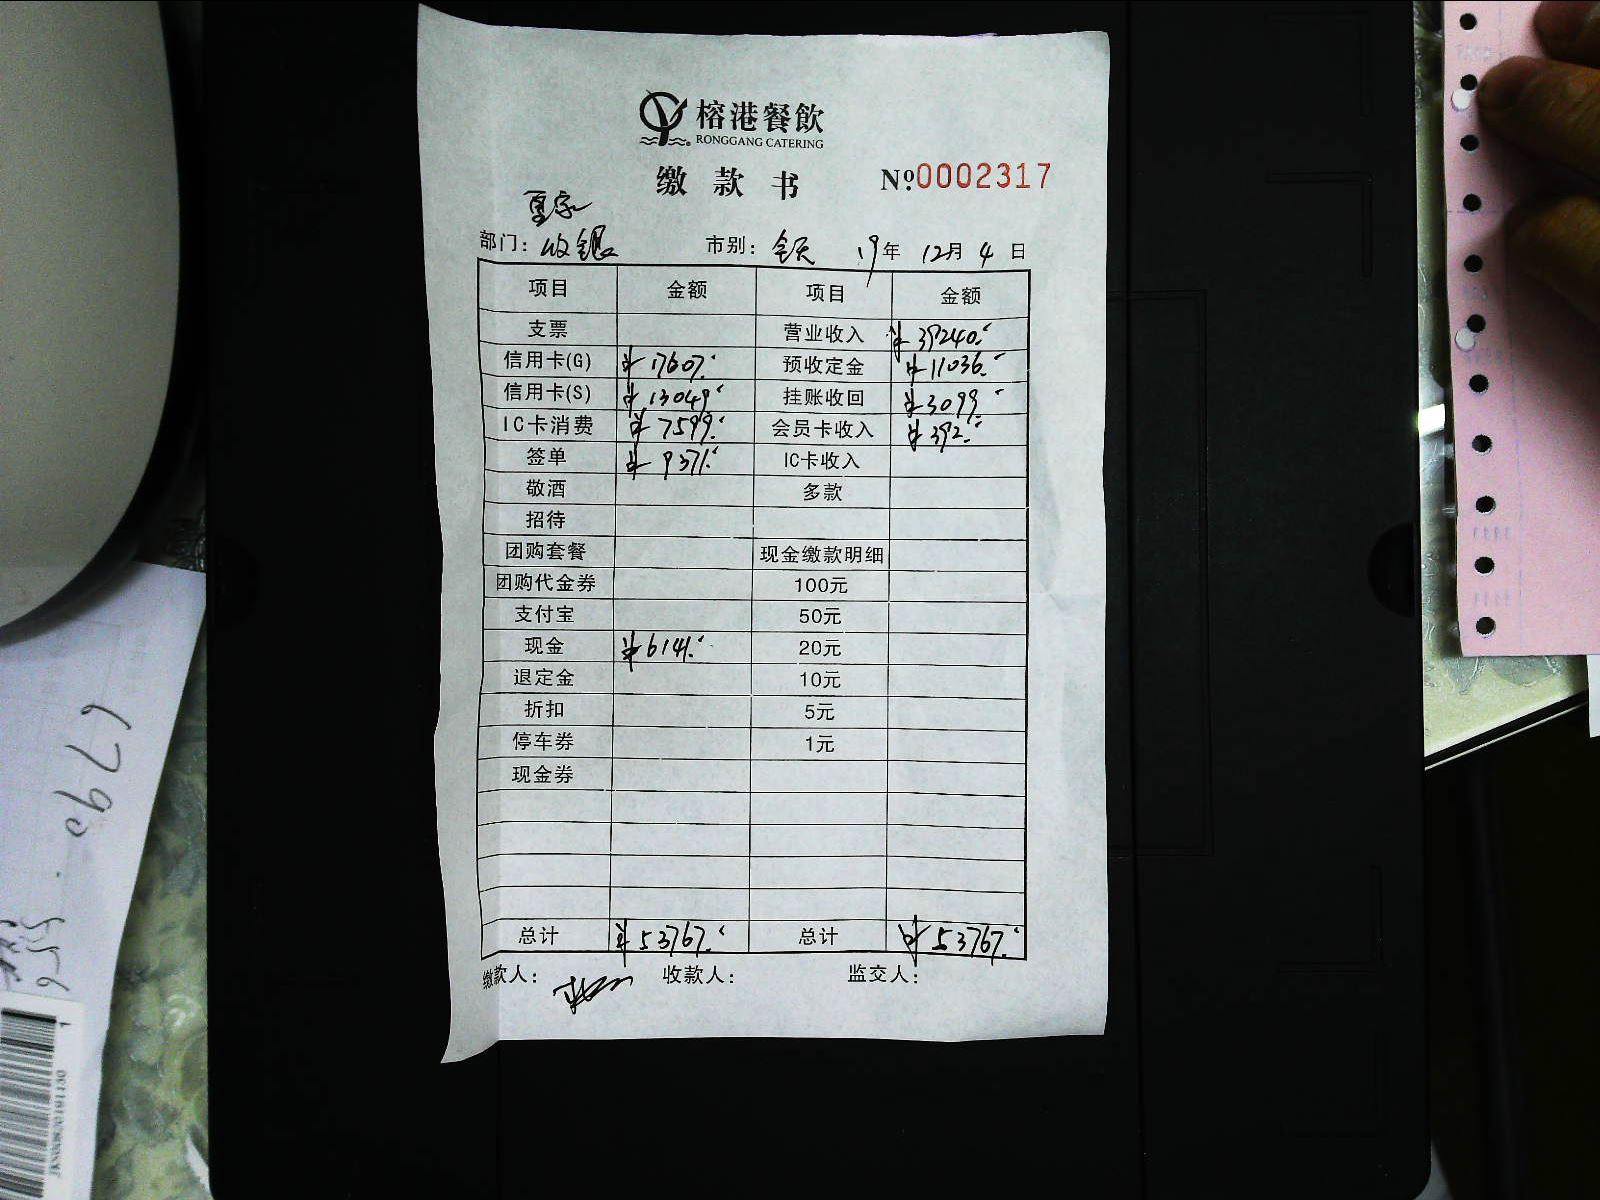 榕港餐飲
RONGGANG CATERING
缴款书 Nº:0002317
部门: 收银 市别: 全天 19年 12月 4日
项目 金额 项目 金额
支票 营业收入 ¥39240.-
信用卡(G) ¥17607.- 预收定金 ¥11036.-
信用卡(S) ¥13049.- 挂账收回 ¥3099.-
IC卡消费 ¥7599.- 会员卡收入 ¥392.-
签单 ¥9371.- IC卡收入
敬酒 多款
招待
团购套餐 现金缴款明细
团购代金券 100元
支付宝 50元
现金 ¥6141.- 20元
退定金 10元
折扣 5元
停车券 1元
现金券
总计 ¥53767.- 总计 ¥53767.-
缴款人: 收款人: 监交人:
6790